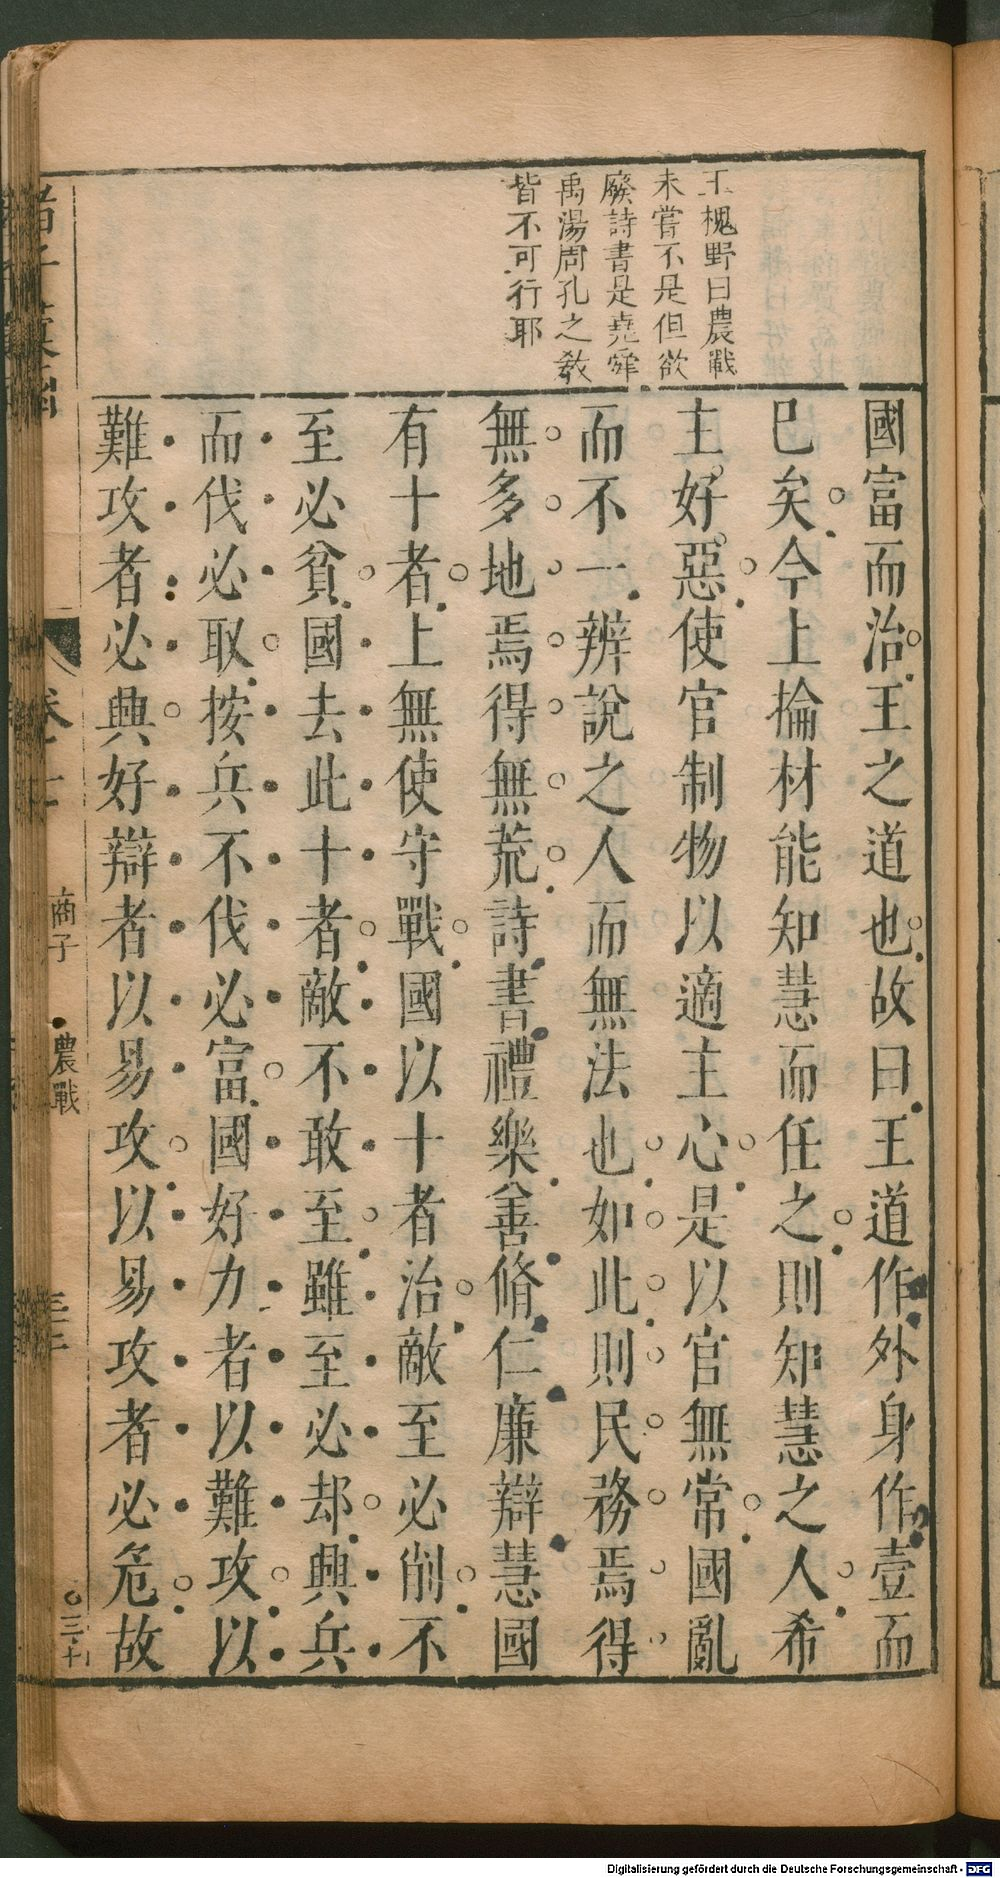 王槐野曰農戰
未嘗不是但欲
廢詩書是堯舜
禹湯周孔之敎
皆不可行耶
國富而治王之道也故曰王道作外身作壹而
巳矣今上掄材能知慧而任之則知慧之人希
主好惡使官制物以適主心是以官無常國亂
而不一辨說之人而無法也如此則民務焉得
無多地焉得無荒詩書禮樂善脩仁廉辯慧國
有十者上無使守戰國以十者治敵至必削不
至必貧國去此十者敵不敢至雖至必却興兵
而伐必取按兵不伐必富國好力者以難攻以
難攻者必興好辯者以易攻以易攻者必危故
商子
農戰
Digitalisierung gefördert durch die Deutsche Forschungsgemeinschaft - DFG